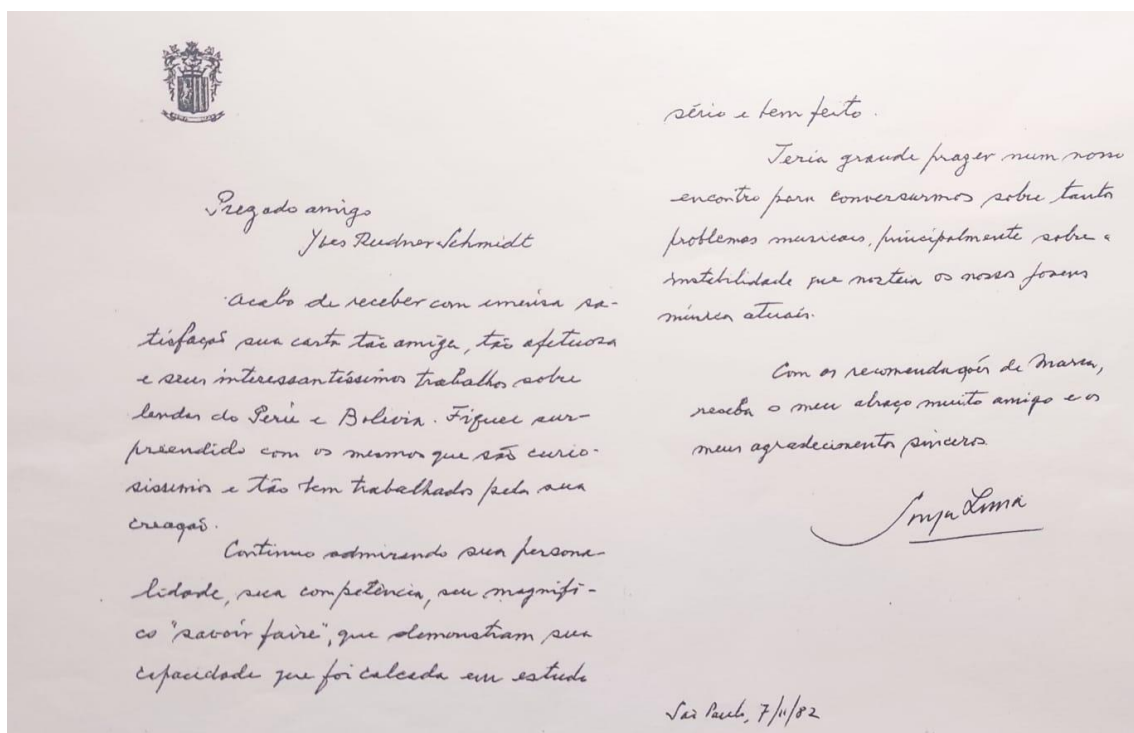 Prezado amigo
Yves Rudner Schmidt
Acabo de receber com imensa sa-
tisfação sua carta tão amiga, tão afetuosa
e seus interessantíssimos trabalhos sobre
lendas do Perú e Bolivia. Fiquei sur-
preendido com os mesmos que são curio-
sissimos e tão bem trabalhados pela sua
creação.
Continuo admirando sua persona-
lidade, sua competência, seu magnífi-
co "savoir faire", que demonstram sua
capacidade que foi calcada em estudo
sério e bem feito.
Teria grande prazer num nosso
encontro para conversarmos sobre tantos
problemas musicais, principalmente sobre a
instabilidade que norteia os nossos jovens
músicos atuais.
Com as recomendações de
receba o meu abraço muito amigo e os
meus agradecimentos sinceros
Lima
São Paulo, 7/11/82